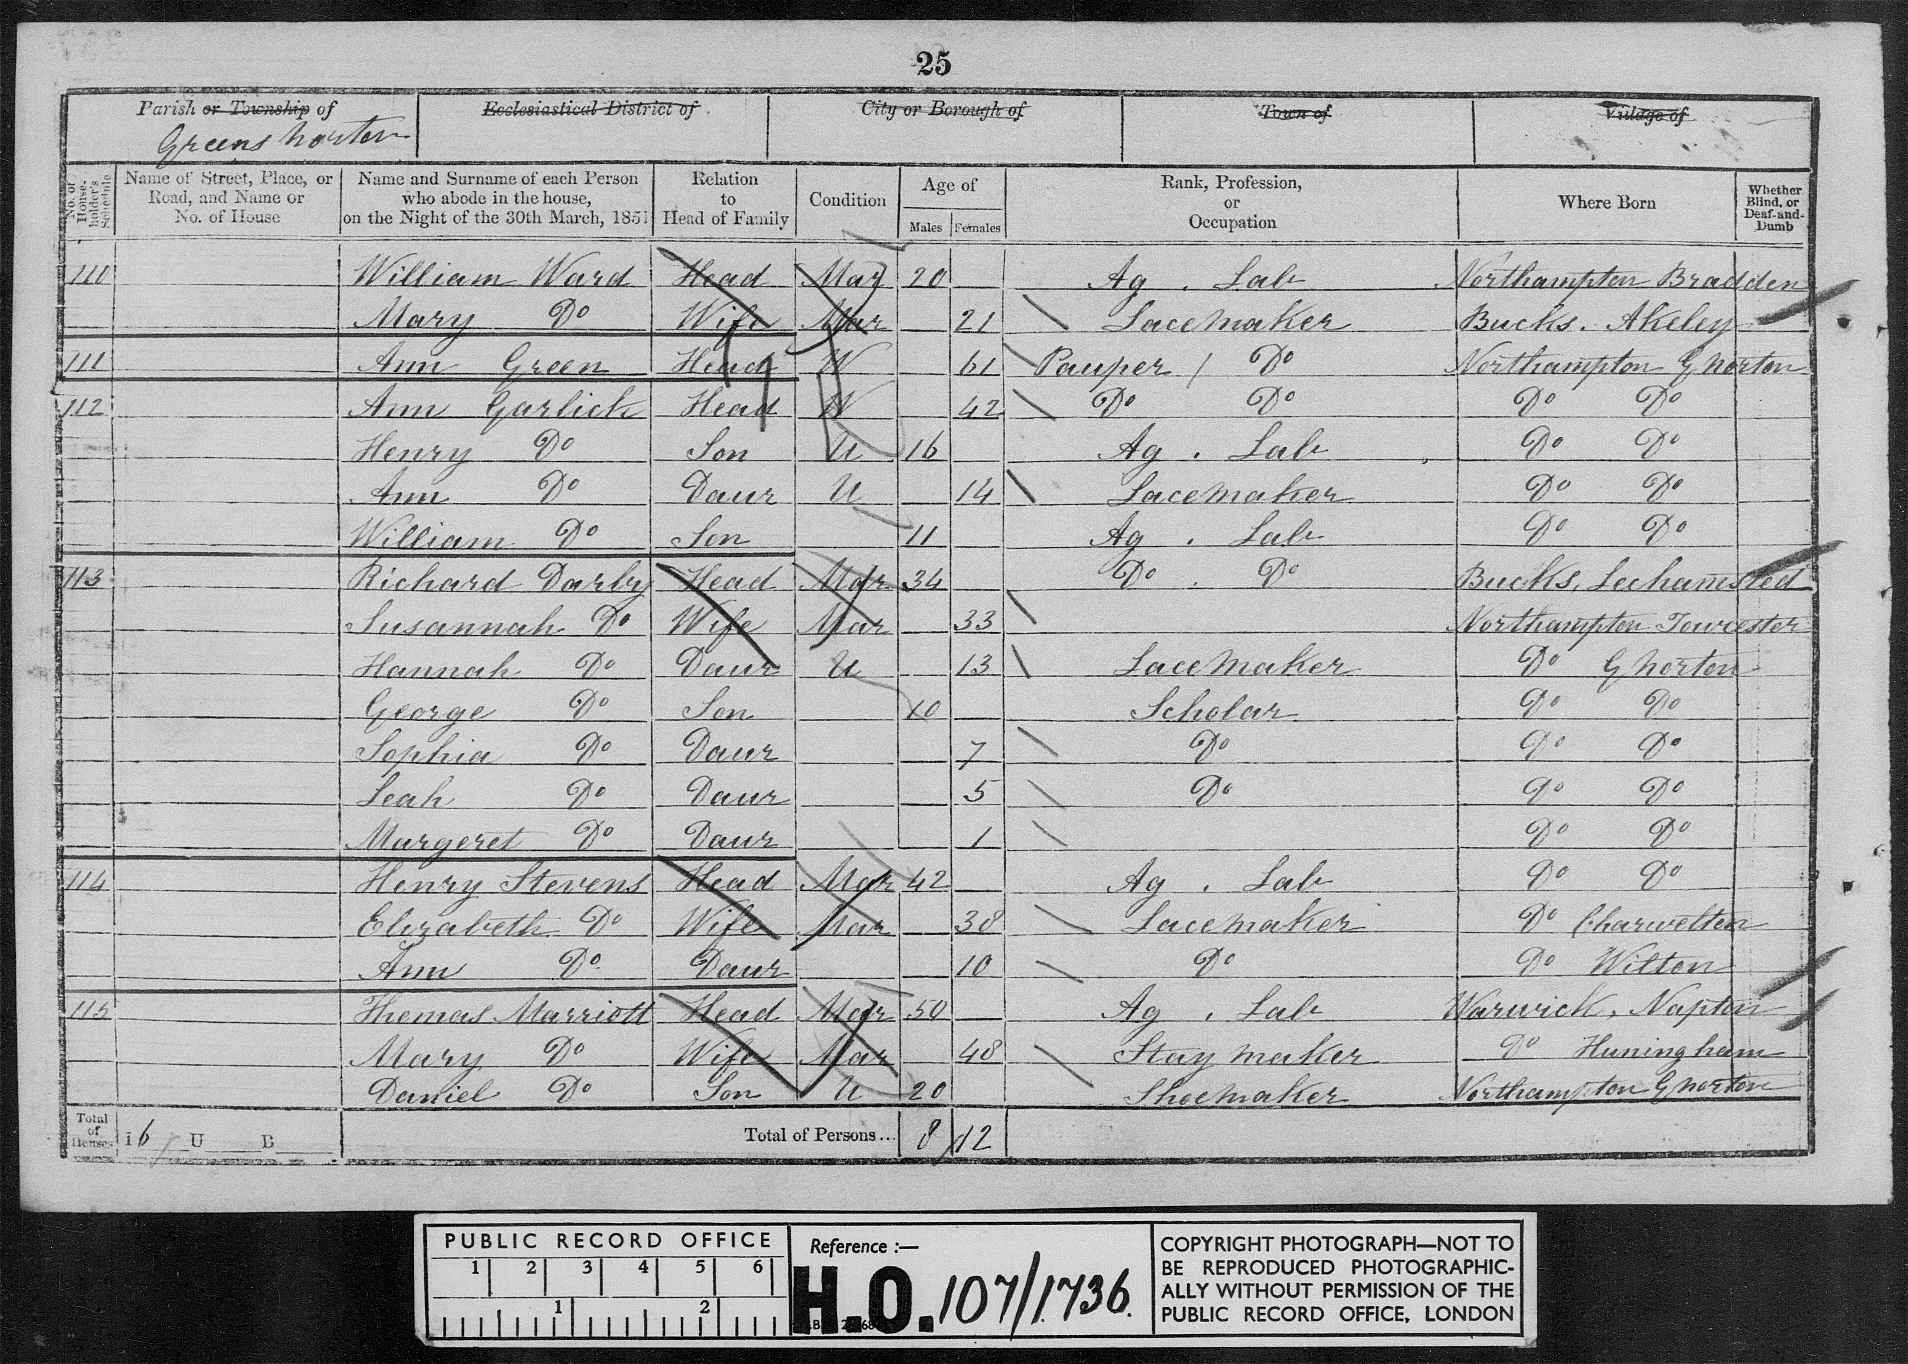 25
Parish or Township of Ecclesiastical District of City or Borough of Town of Village of
Greens Norton
No. of House-holder's Schedule Name of Street, Place, or Road, and Name or No. of House Name and Surname of each Person who abode in the house, on the Night of the 30th March, 1851 Relation to Head of Family Condition Age of Males Females Rank, Profession, or Occupation Where Born Whether Blind, or Deaf-and-Dumb
110 William Ward Head Mar 20 Ag. Lab Northampton Bradden
Mary Do Wife Mar 21 Lacemaker Bucks. Akeley
111 Ann Green Head W 61 Pauper / Do Northampton G Norton
112 Ann Garlick Head W 42 Do Do Do Do
Henry Do Son U 16 Ag. Lab Do Do
Ann Do Daur U 14 Lacemaker Do Do
William Do Son 11 Ag. Lab Do Do
113 Richard Darby Head Mar 34 Do. Do Bucks, Lechamsted
Susannah Do Wife Mar 33 Northampton Towcester
Hannah Do Daur U 13 Lacemaker Do G Norton
George Do Son 10 Scholar Do Do
Sophia Do Daur 7 Do Do Do
Leah Do Daur 5 Do Do Do
Margeret Do Daur 1 Do Do
114 Henry Stevens Head Mar 42 Ag. Lab Do Do
Elizabeth Do Wife Mar 38 Lacemaker Do Charwelton
Ann Do Daur 10 Do Do Wilton
115 Thomas Marriott Head Mar 50 Ag. Lab Warwick, Napton
Mary Do Wife Mar 48 Stay maker Do Huningham
Daniel Do Son U 20 Shoemaker Northampton G Norton
Total of Houses I 6 U B Total of Persons... 8 12
PUBLIC RECORD OFFICE
1 2 3 4 5 6
1 2
Reference :—
H.O. 107/1736.
COPYRIGHT PHOTOGRAPH—NOT TO
BE REPRODUCED PHOTOGRAPHIC-
ALLY WITHOUT PERMISSION OF THE
PUBLIC RECORD OFFICE, LONDON